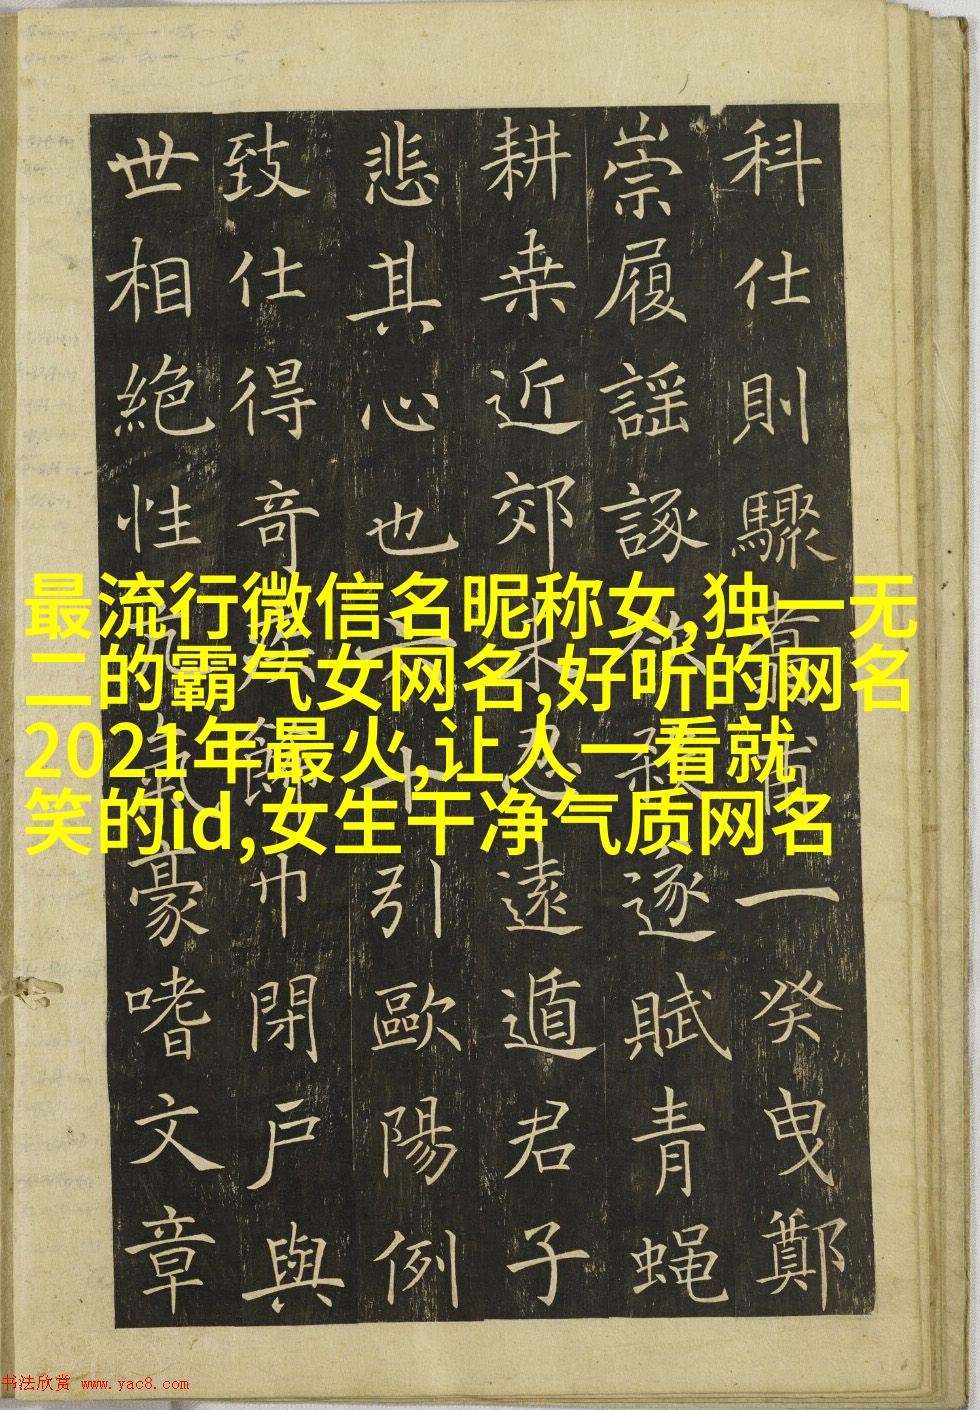 科仕則驟一癸曳鄭
崇履謡諑逐賦青蝿
耕桒近郊遠遁君子
悲其心也引歐陽例
致仕得奇巾閉戸與
世相絶性豪嗜文章
最流行微信名昵称女,独一无
二的霸气女网名,好听的网名
2021年最火,让人一看就
笑的id,女生干净气质网名
书法欣赏 www.yac8.com